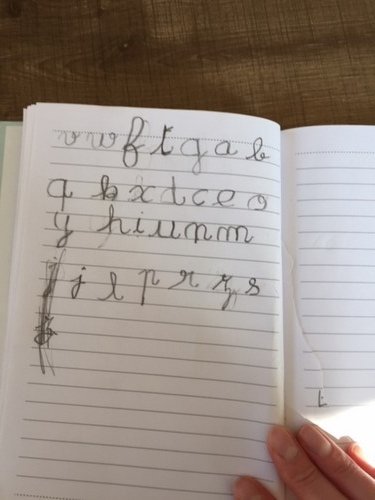 v w f t g a b
q k x d c e o
y h i u n m
j j l p r z s
t